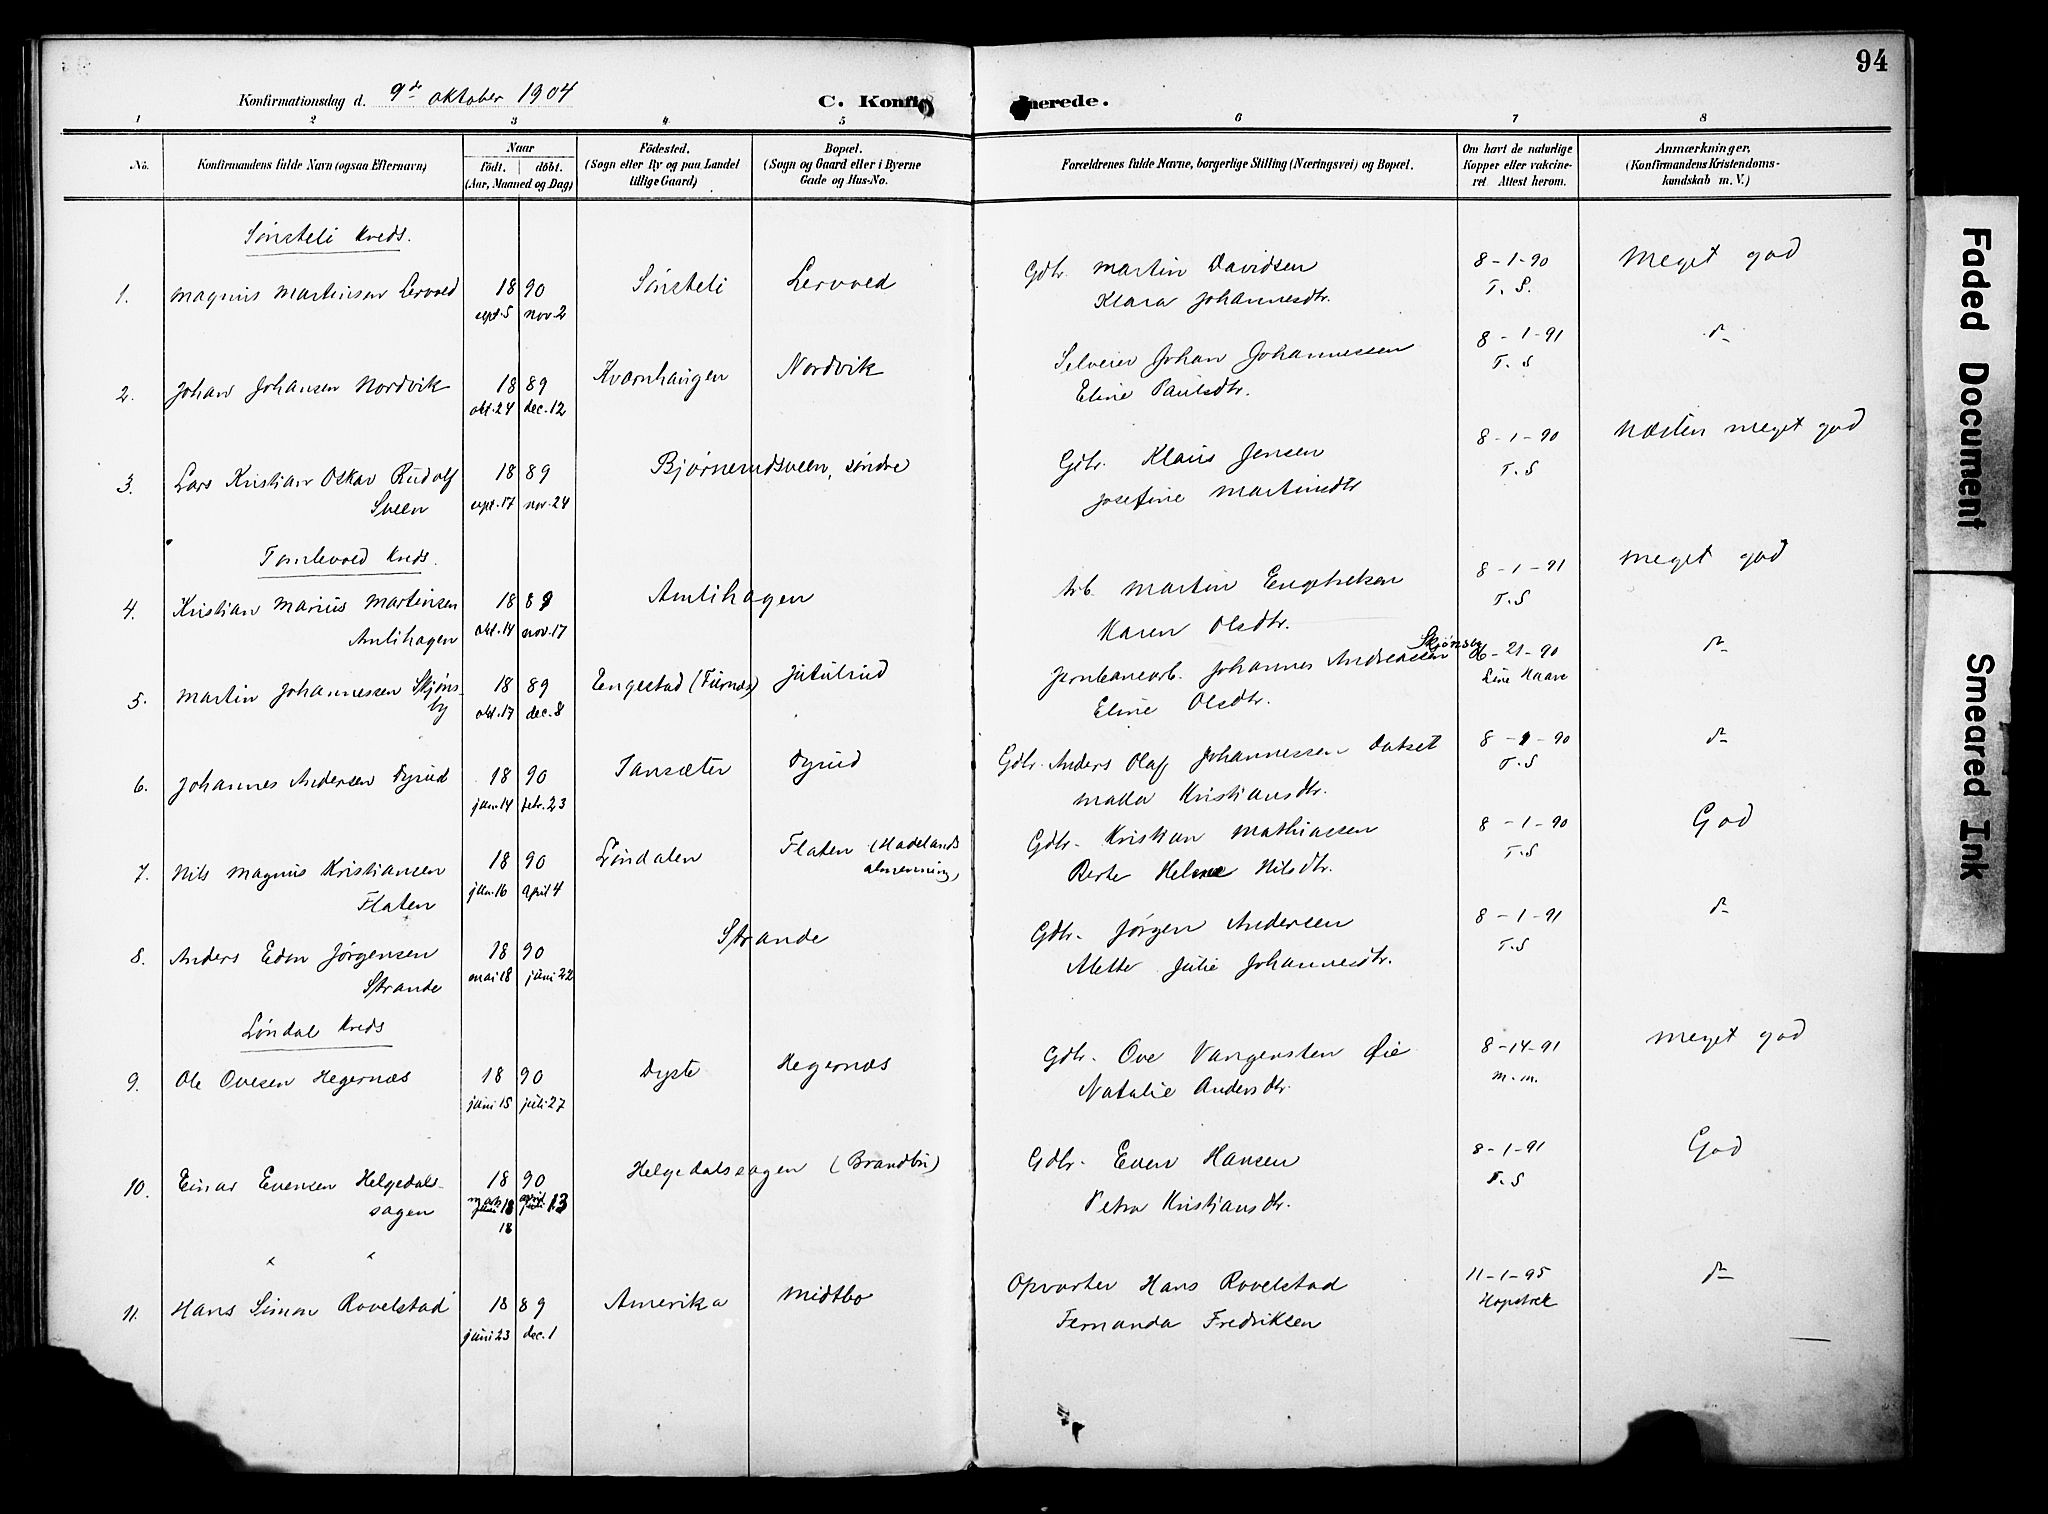 94
Konfirmationsdag d. 9de oktober 1904
C. Konfirmerede.
1 2 3 4 5 6 7 8
No. Konfirmandens fulde Navn (ogsaa Efternavn) Naar født. døbt. (Aar, Maaned og Dag) Fødested. (Sogn eller By og paa Landet tillige Gaard) Bopæl. (Sogn og Gaard eller i Byerne Gade og Hus-No. Forældrenes fulde Navne, borgerlige Stilling (Næringsvei) og Bopæl. Om havt de naturlige Kopper eller vakcineret Attest herom. Anmærkninger, (Konfirmandens Kristendomskundskab m. V.)
Sønsteli Kreds.
1. Magnus Martinsen Lervold 18 90 Sønsteli Lervold Gdbr. Martin Davidsen 8-1-90 Meget god
sept. 5 nov. 2 Klara Johannesdtr. T. S.
2. Johan Johansen Nordvik 18 89 Kvarnhaugen Nordvik Selveier Johan Johannessen 8-1-91 do
okt. 24 dec. 12 Eline Paulsdtr. T. S
3. Lars Kristian Oskar Rudolf 18 89 Bjørnerudsveen, søndre Gdbr. Klaus Jensen 8-1-90 Næsten meget god
Sveen sept. 17 nov. 24 Josefine Martinsdtr T. S
Tomlevold Kreds.
4. Kristian Marius Martinsen 18 89 Amlihagen Arb. Martin Engebretsen 8-1-91 Meget god
Amlihagen okt. 14 nov. 17 Karen Olsdtr. T. S
5. Martin Johannessen Skjøns- 18 89 Engestad (Furnæs) Jutulrud Jernbanearb. Johannes Andreassen Skjønsby 6-21-90 do
by okt. 17 dec. 8 Eline Olsdtr. Line Haave
6. Johannes Andersen Dyrud 18 90 Tansæter Dyrud Gdbr. Anders Olaf Johannessen 8-1-90 do
jan. 14 febr. 23 Kristiansdtr. T. S
7. Nils Magnus Kristiansen 18 90 Løndalen Flaten (Hadelands Gdbr. Kristian Mathiassen 8-1-90 God
Flaten jan. 16 april 4 almenning) Berte Helene Nilsdtr. T. S
8. Anders Edon Jørgensen 18 90 Strande Gdbr. Jørgen Andersen 8-1-91 do
Strande mai 18 juni 22 Mette Julie Johannesdtr. T. S
Løndal Kreds
9. Ole Ovesen Hegernæs 18 90 Dyste Hegernæs Gdbr. Ove Vangensten Øie 8-14-91 Meget god
juni 15 juli 27 Natalie Andersdtr. m. m.
10. Einar Evensen Helgedals- 18 90 Helgedalssagen (Brandbu) Gdbr. Even Hansen 8-1-91 God
sagen april 13 Petra Kristiansdtr. T. S
18
" "
11. Hans Simon Rovelstad 18 89 Amerika Midtbo Opvarter Hans Rovelstad 11-1-95 do
juni 23 dec. 1 Fernanda Fredriksen
Faded Document
Smeared Ink